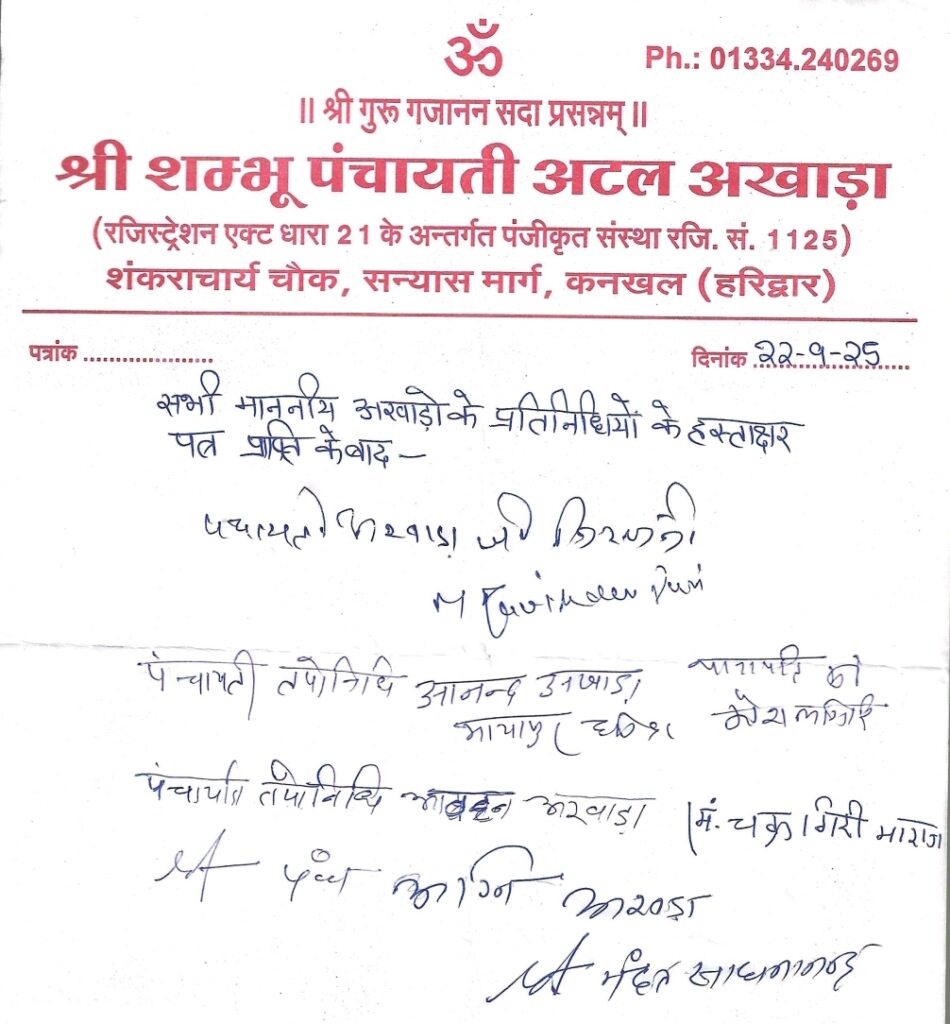 ॐ
Ph.: 01334.240269
॥ श्री गुरू गजानन सदा प्रसन्नम् ॥
श्री शम्भू पंचायती अटल अखाड़ा
(रजिस्ट्रेशन एक्ट धारा 21 के अन्तर्गत पंजीकृत संस्था रजि. सं. 1125)
शंकराचार्य चौक, सन्यास मार्ग, कनखल (हरिद्वार)
पत्रांक ....................
दिनांक 22-9-25
सभी माननीय अखाड़ो के प्रतिनिधियों के हस्ताक्षर
पत्र प्राप्ति के बाद –
पंचायती अखाड़ा श्री निरंजनी
M Ravinder Puri
पंचायती तपोनिधि आनन्द अखाड़ा
मायापुर हरिद्वार
पंचायति तपोनिधि आवाहन अखाड़ा (मं. चक्र गिरी माराज
पंच अग्नि अखाड़ा
महंत साधनानन्द